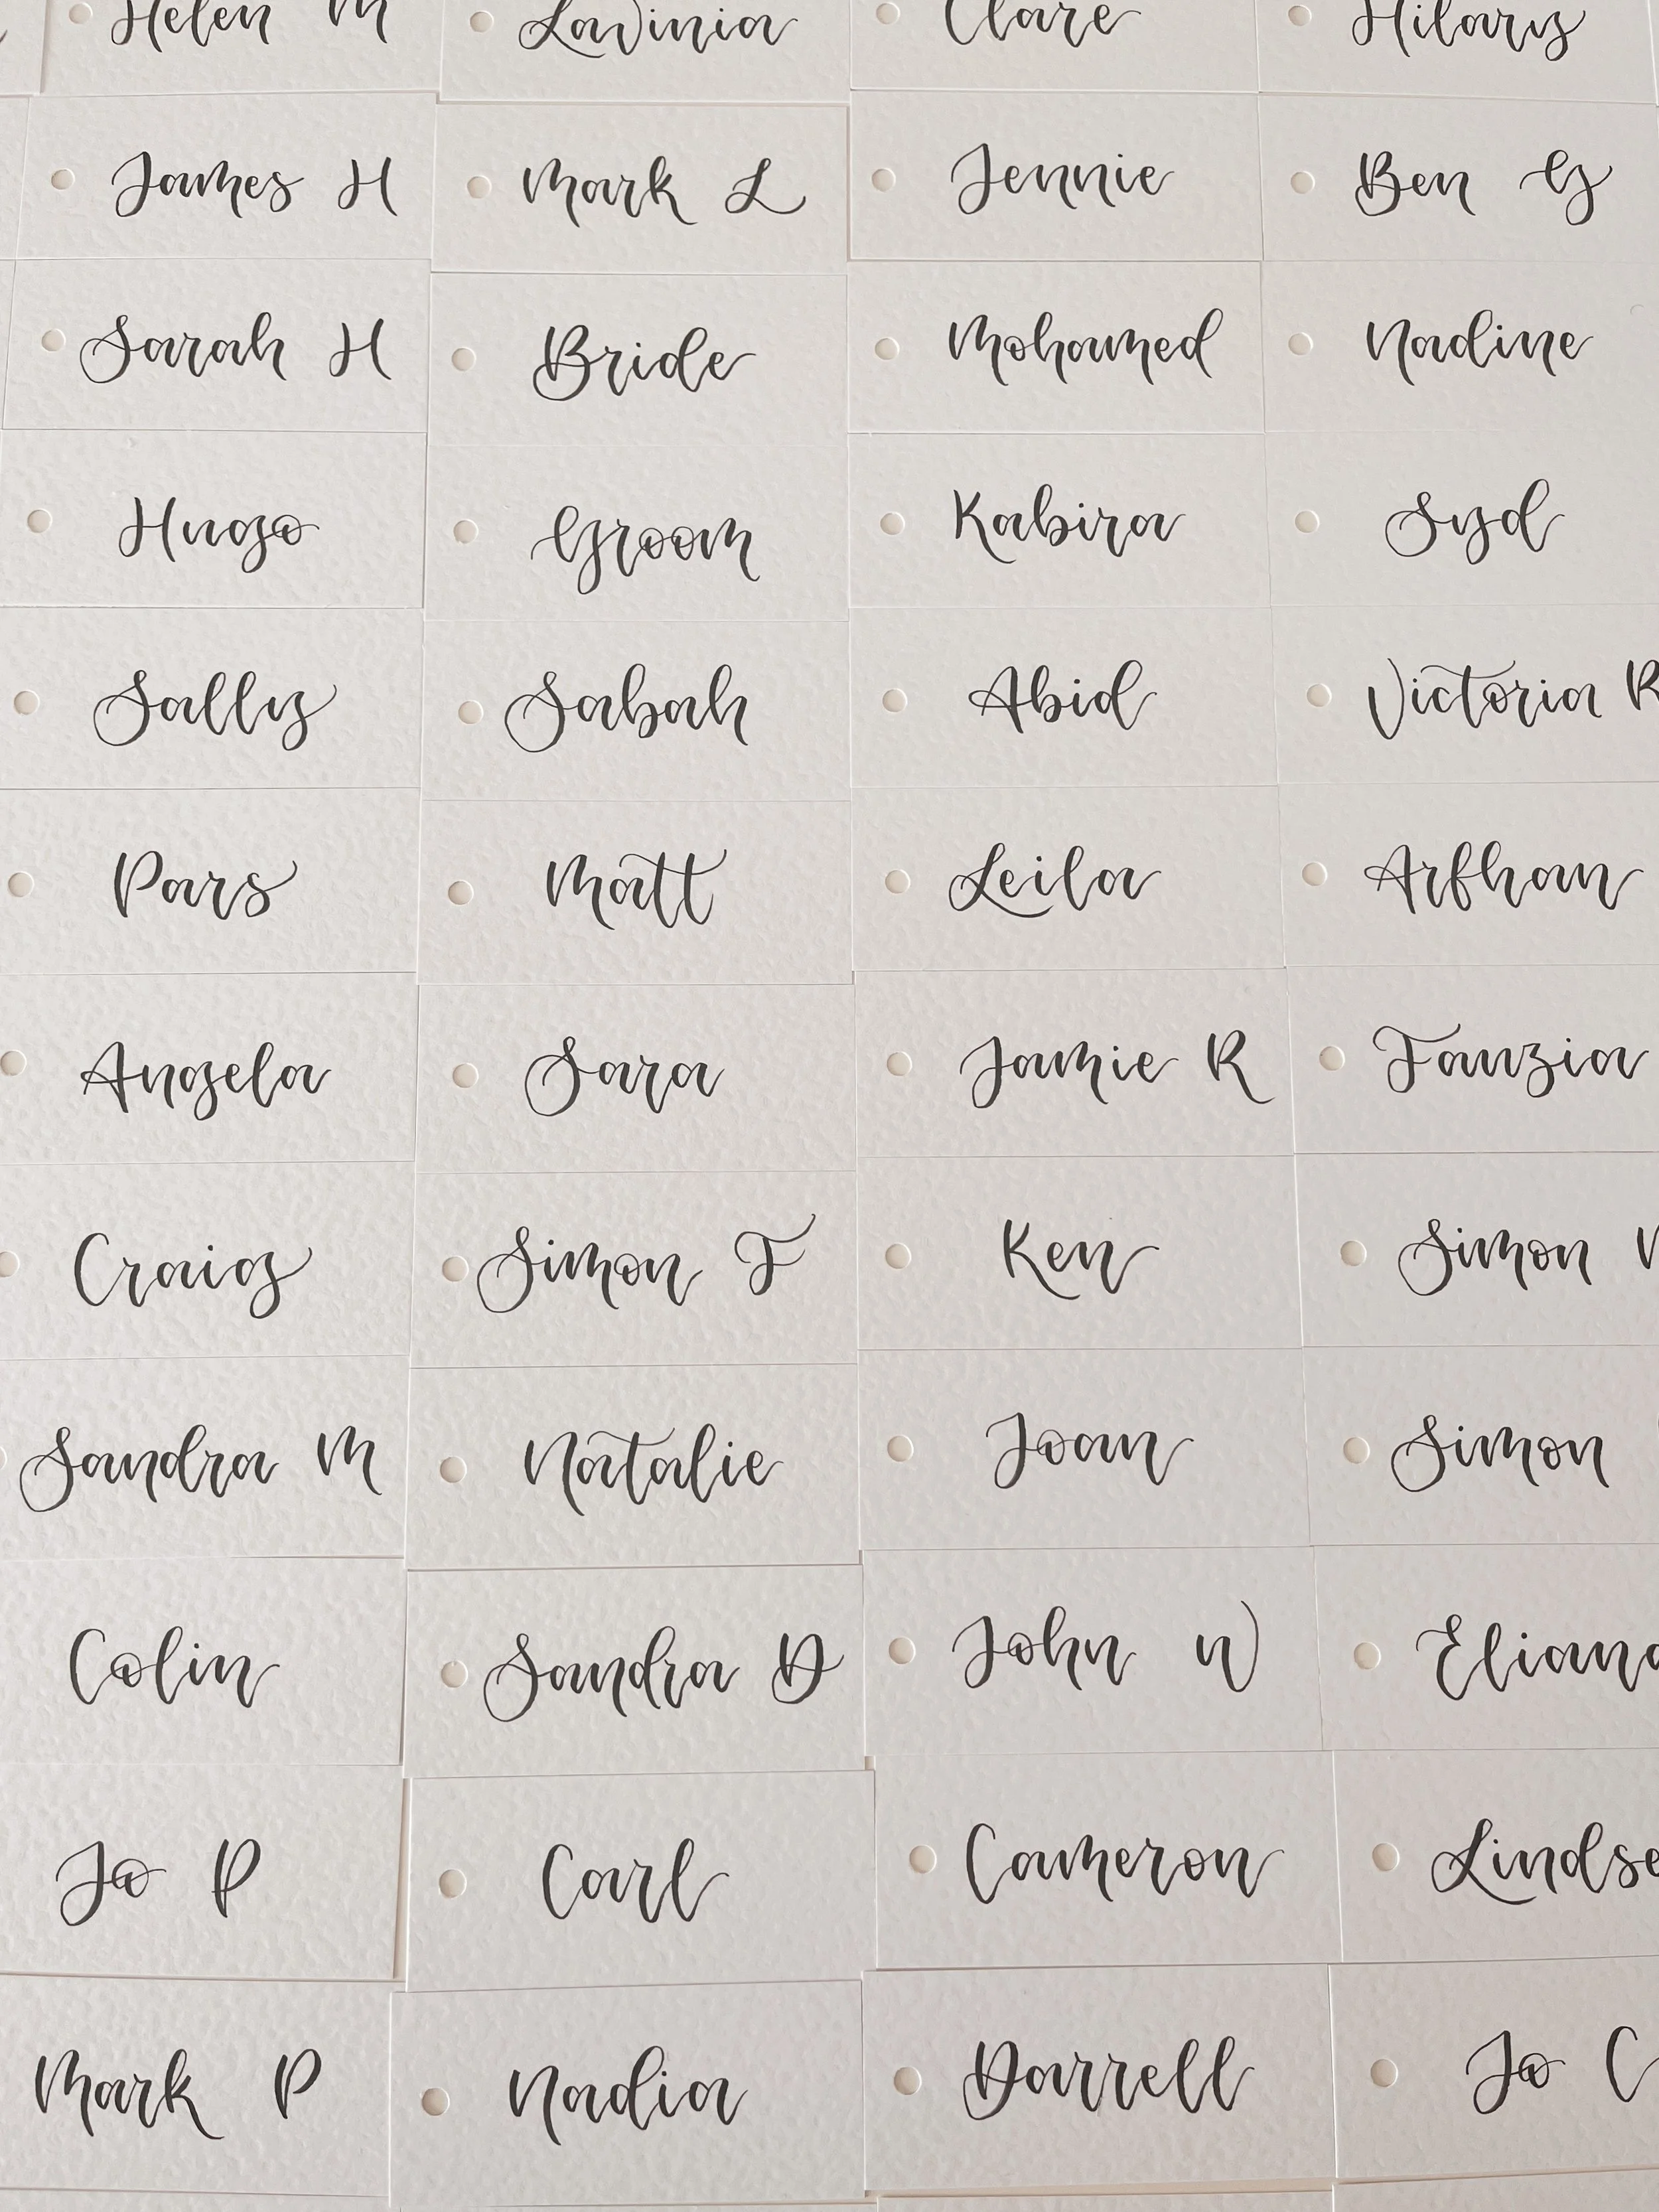 Helen M Lavinia Clare Hilary
James H Mark L Jennie Ben G
Sarah H Bride Mohamed Nadine
Hugo Groom Kabira Syd
Sally Sabah Abid Victoria R
Pars Matt Leila Arfhan
Angela Sara Jamie R Fauzia
Craig Simon F Ken Simon
Sandra M Natalie Joan Simon
Colin Sandra D John W Eliana
Jo P Carl Cameron Lindse
Mark P Nadia Darrell Jo C